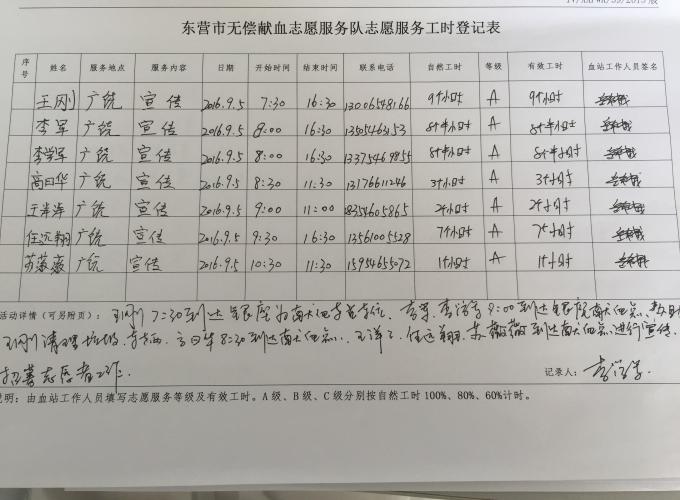 东营市无偿献血志愿服务队志愿服务工时登记表
序号 姓名 服务地点 服务内容 日期 开始时间 结束时间 联系电话 自然工时 等级 有效工时 血站工作人员签名
王刚 广饶 宣传 2016.9.5 7:30 16:30 13006548166 9个小时 A 9个小时
李军 广饶 宣传 2016.9.5 8:00 16:30 13505463153 8个半小时 A 8个半小时
李学军 广饶 宣传 2016.9.5 8:00 16:30 13375469855 8个半小时 A 8个半小时
高日华 广饶 宣传 2016.9.5 8:30 11:30 13176611246 3个小时 A 3个小时
王洋洋 广饶 宣传 2016.9.5 9:00 11:00 18354605865 2个小时 A 2个小时
任远翔 广饶 宣传 2016.9.5 9:30 16:30 13561005528 7个小时 A 7个小时
苏薇薇 广饶 宣传 2016.9.5 10:30 11:30 15954655072 1个小时 A 1个小时
活动详情（可另附页）： 王刚 7:30到达银座为献血车占车位、李军、李学军8:00到达银座献血点、
王刚清理垃圾、高日华8:30到达献血点、王洋洋、任远翔、苏薇薇到达献血点进行宣传、
招募志愿者工作.
记录人： 李学军
说明：由血站工作人员填写志愿服务等级及有效工时。A级、B级、C级分别按自然工时100%、80%、60%计时。